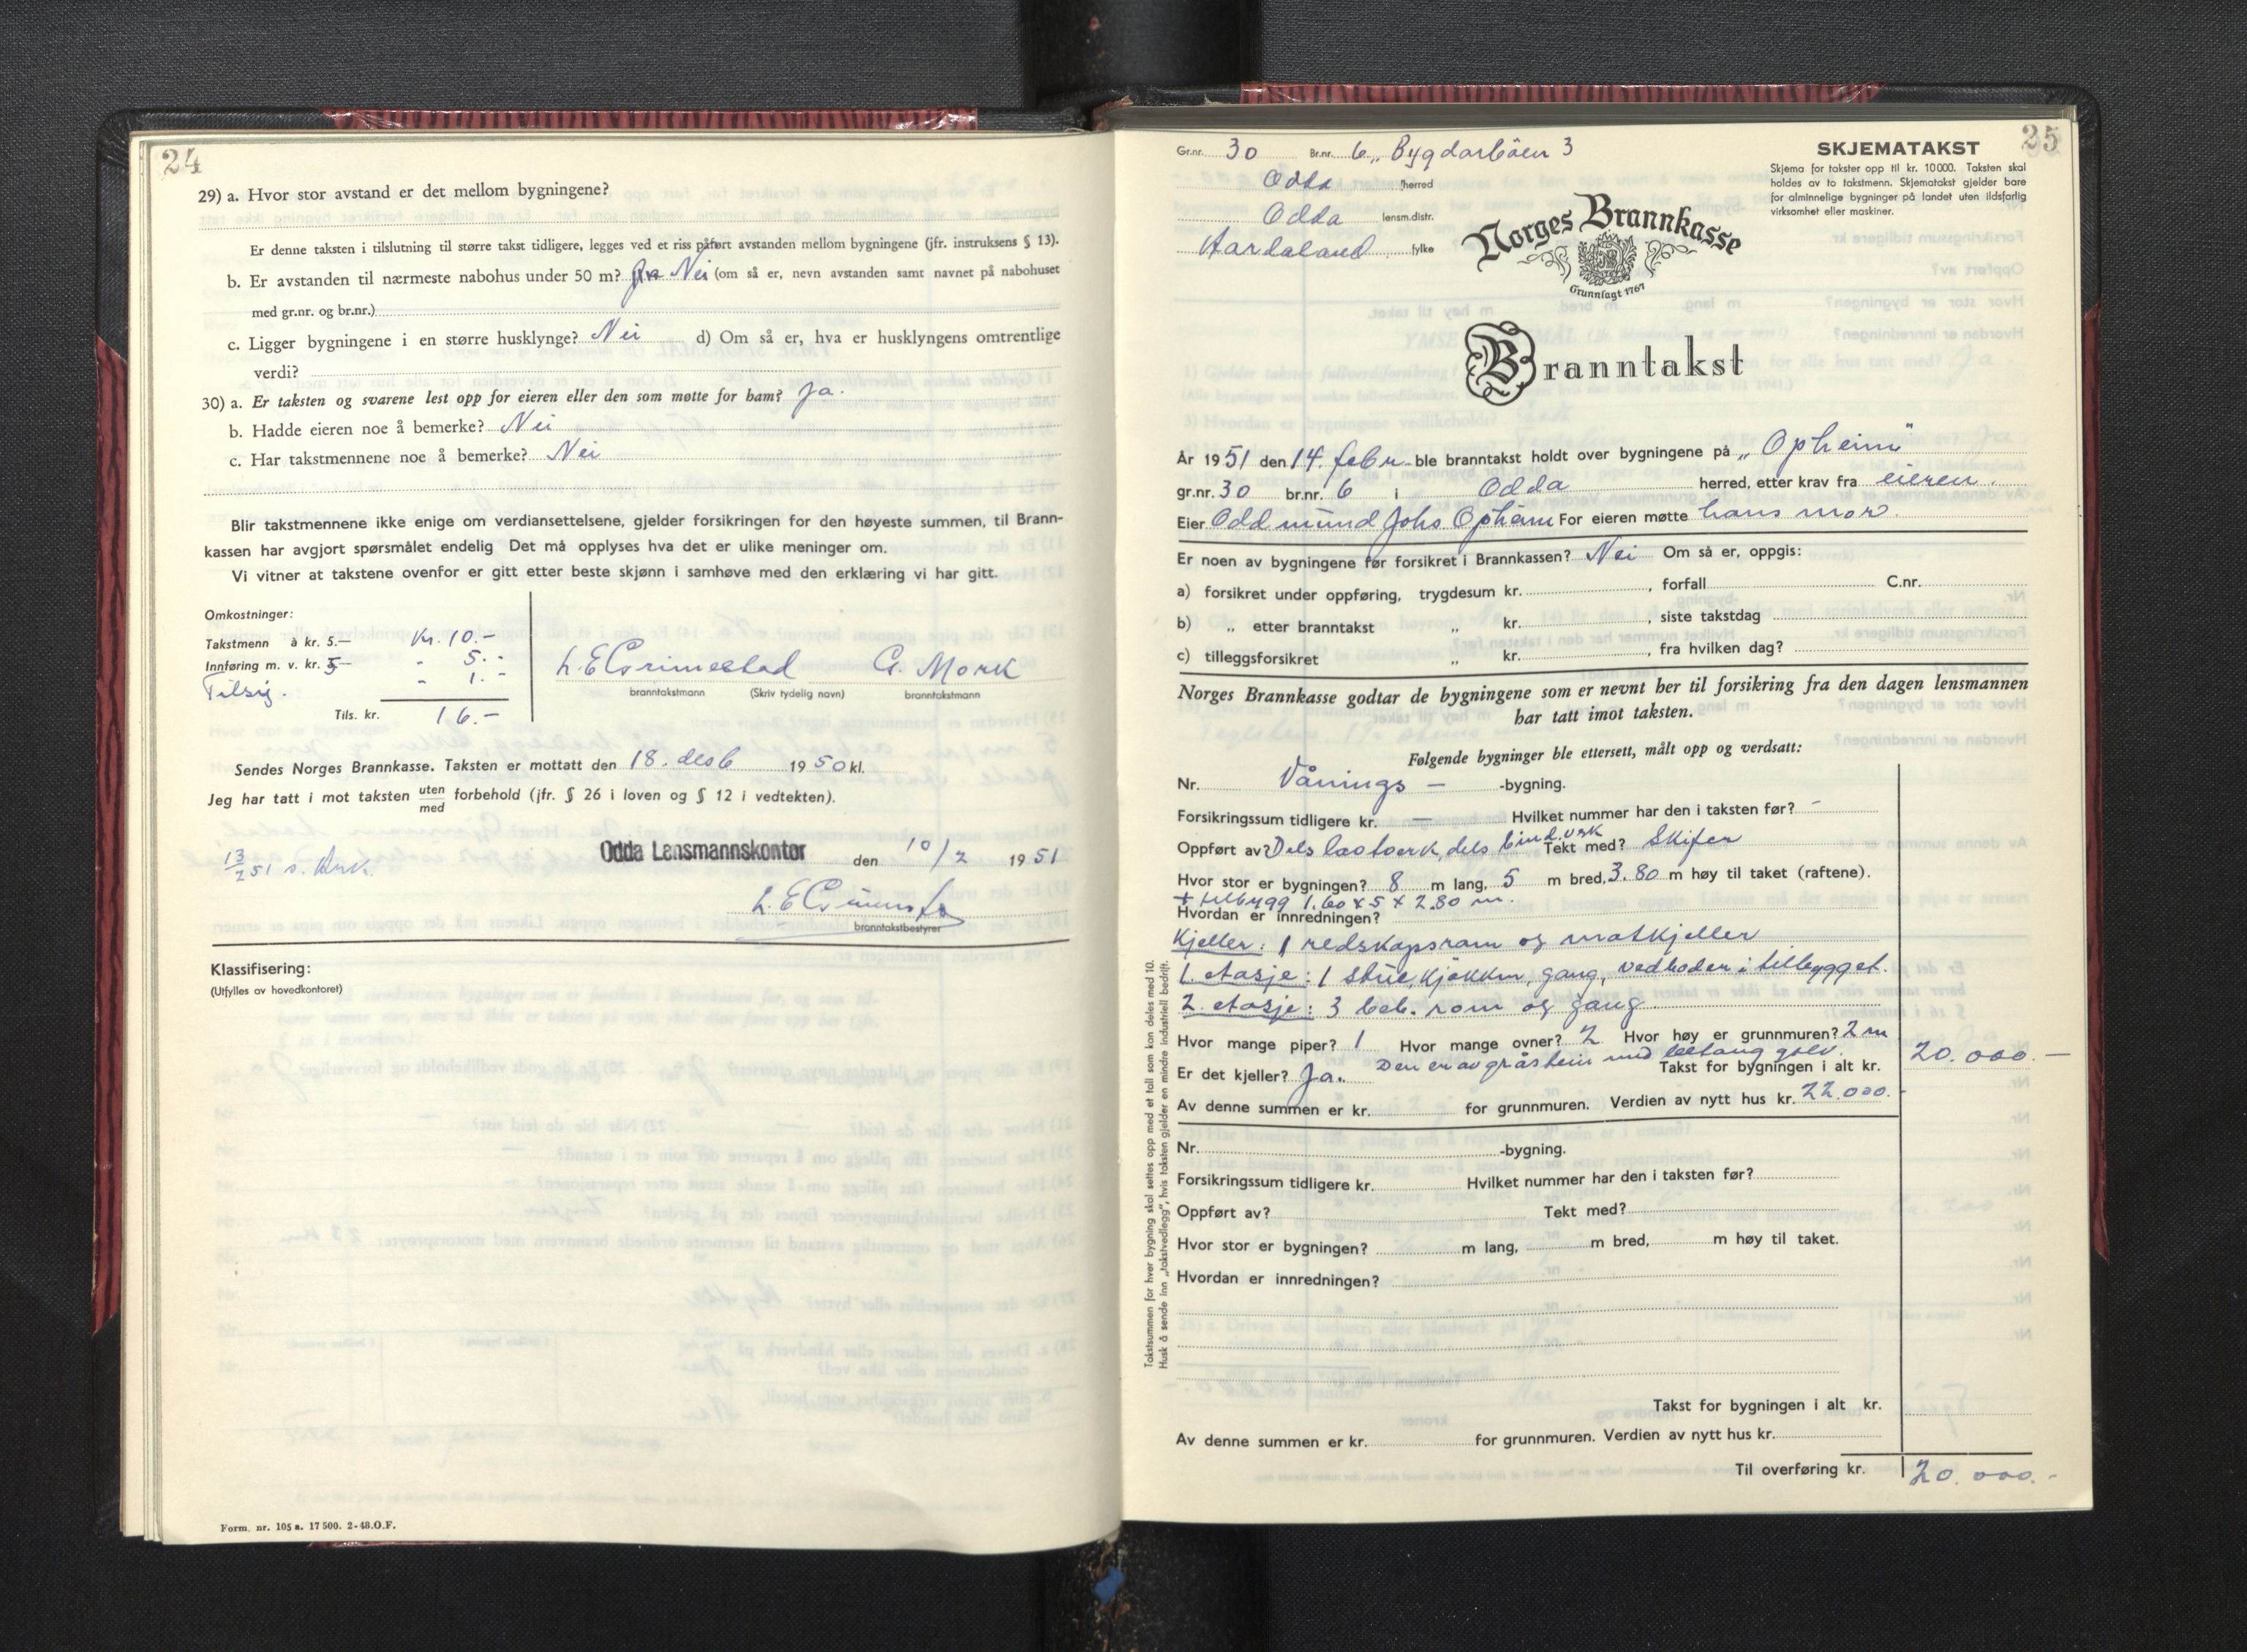 24
29) a. Hvor stor avstand er det mellom bygningene?
Er denne taksten i tilslutning til større takst tidligere, legges ved et riss påført avstanden mellom bygningene (jfr. instruksens § 13).
b. Er avstanden til nærmeste nabohus under 50 m? Nei (om så er, nevn avstanden samt navnet på nabohuset
med gr.nr. og br.nr.)
c. Ligger bygningene i en større husklynge? Nei d) Om så er, hva er husklyngens omtrentlige
verdi?
30) a. Er taksten og svarene lest opp for eieren eller den som møtte for ham? Ja.
b. Hadde eieren noe å bemerke? Nei
c. Har takstmennene noe å bemerke? Nei
Blir takstmennene ikke enige om verdiansettelsene, gjelder forsikringen for den høyeste summen, til Brann-
kassen har avgjort spørsmålet endelig Det må opplyses hva det er ulike meninger om.
Vi vitner at takstene ovenfor er gitt etter beste skjønn i samhøve med den erklæring vi har gitt.
Omkostninger:
Takstmenn à kr. 5.— Kr. 10.-
Innføring m. v. kr. 5— " 5.-
Tilsig. " 1.-
Tils. kr. 16.-
L. E Grimestad G. Mork
branntakstmann (Skriv tydelig navn) branntakstmann
Sendes Norges Brannkasse. Taksten er mottatt den 18. desb 1950 kl.
Jeg har tatt i mot taksten uten/med forbehold (jfr. § 26 i loven og § 12 i vedtekten).
13/2 51 s.
Odda Lensmannskontor den 10/2 1951
L. E Grimestad
branntakstbestyrer
Klassifisering:
(Utfylles av hovedkontoret)
Form. nr. 105 a. 17 500. 2-48.O.F.
25
Gr.nr. 30 Br.nr. 6 „Bygdarböen 3
Odda herred
Odda lensm.distr.
Hordaland fylke
SKJEMATAKST
Skjema for takster opp til kr. 10000. Taksten skal
holdes av to takstmenn. Skjematakst gjelder bare
for alminnelige bygninger på landet uten ildsfarlig
virksomhet eller maskiner.
Norges Brannkasse
Grunnlagt 1767
Branntakst
År 1951 den 14. febr. ble branntakst holdt over bygningene på „Opheim"
gr.nr. 30 br.nr. 6 i Odda herred, etter krav fra eieren.
Eier Oddmund Johs Opheim For eieren møtte hans mor.
Er noen av bygningene før forsikret i Brannkassen? Nei Om så er, oppgis:
a) forsikret under oppføring, trygdesum kr. , forfall C.nr.
b) „ etter branntakst „ kr. , siste takstdag
c) tilleggsforsikret „ kr. , fra hvilken dag?
Norges Brannkasse godtar de bygningene som er nevnt her til forsikring fra den dagen lensmannen
har tatt imot taksten.
Følgende bygninger ble ettersett, målt opp og verdsatt:
Nr. Vånings — -bygning.
Forsikringssum tidligere kr. — Hvilket nummer har den i taksten før? -
Oppført av? Dels lastverk, dels bind.verk Tekt med? Skifer
Hvor stor er bygningen? 8 m lang, 5 m bred, 3.80 m høy til taket (raftene).
+ tilbygg 1.60 x 5 x 2.80 m.
Hvordan er innredningen?
Kjeller: 1 redskapsrom og matkjeller
1. etasje: 1 stue, kjøkken, gang, vedboder i tilbygget.
2. etasje: 3 beb. rom og gang
Hvor mange piper? 1 Hvor mange ovner? 2 Hvor høy er grunnmuren? 2 m
Den er av gråstein med betong golv.
Er det kjeller? Ja. Takst for bygningen i alt kr. 20.000.—
Av denne summen er kr. for grunnmuren. Verdien av nytt hus kr. 22.000.-
Nr. -bygning.
Forsikringssum tidligere kr. Hvilket nummer har den i taksten før?
Oppført av? Tekt med?
Hvor stor er bygningen? m lang, m bred, m høy til taket.
Hvordan er innredningen?
Takst for bygningen i alt kr.
Av denne summen er kr. for grunnmuren. Verdien av nytt hus kr.
Til overføring kr. 20.000.-
Takstsummen for hver bygning skal settes opp med et tall som kan deles med 10.
Husk å sende inn „takstvedlegg", hvis taksten gjelder en mindre industriell bedrift.